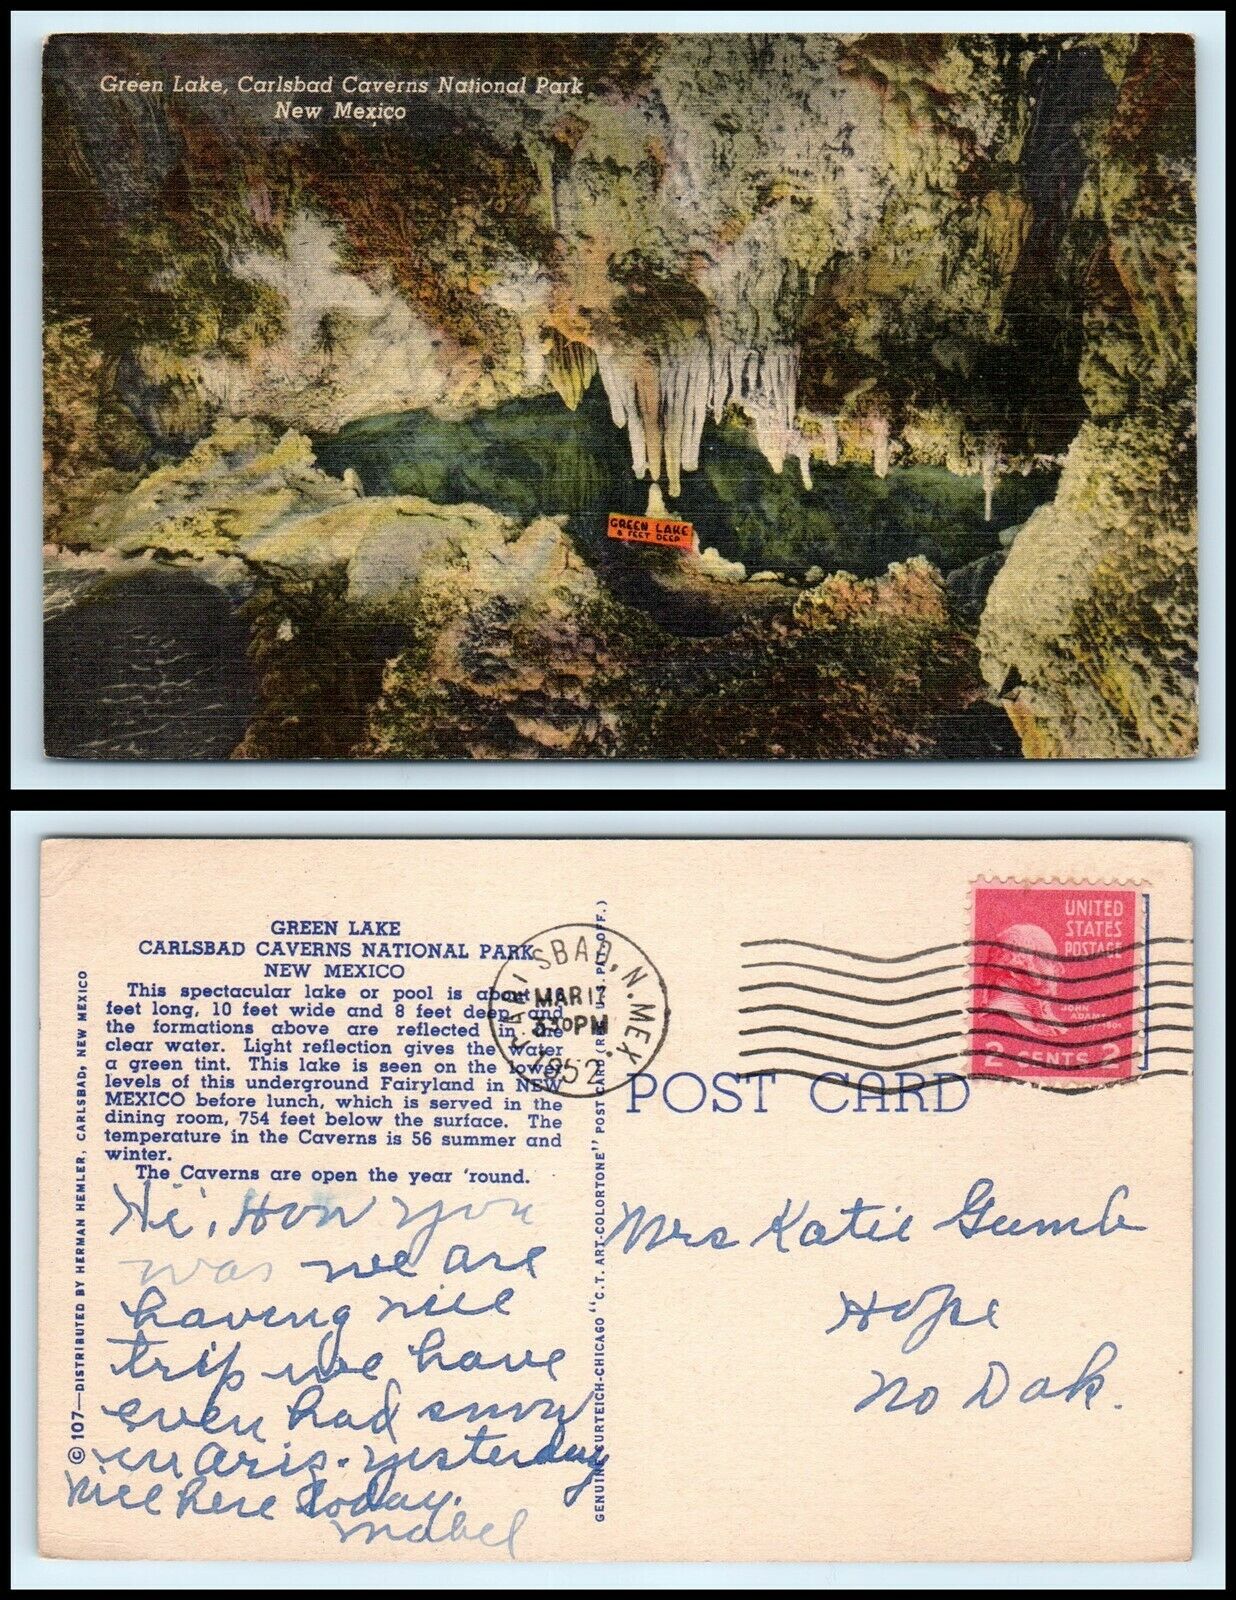 Green Lake, Carlsbad Caverns National Park
New Mexico
GREEN LAKE
8 FEET DEEP
GREEN LAKE
CARLSBAD CAVERNS NATIONAL PARK
NEW MEXICO
This spectacular lake or pool is about
feet long, 10 feet wide and 8 feet deep and
the formations above are reflected in the
clear water. Light reflection gives the water
a green tint. This lake is seen on the lower
levels of this underground Fairyland in NEW
MEXICO before lunch, which is served in the
dining room, 754 feet below the surface. The
temperature in the Caverns is 56 summer and
winter.
The Caverns are open the year 'round.
Hi, How you
was we are
having nice
trip we have
even had snow
in Aris. yesterday
Nice here today.
Mabel
© 107—DISTRIBUTED BY HERMAN HEMLER, CARLSBAD, NEW MEXICO
GENUINE CURTEICH-CHICAGO "C.T. ART-COLORTONE" POST CARD (REG. U.S. PAT. OFF.)
CARLSBAD, N. MEX.
MAR 11
3 30 PM
1952
UNITED
STATES
POSTAGE
JOHN
ADAMS
2 CENTS 2
POST CARD
Mrs Katie Gumb
Hope
No Dak.